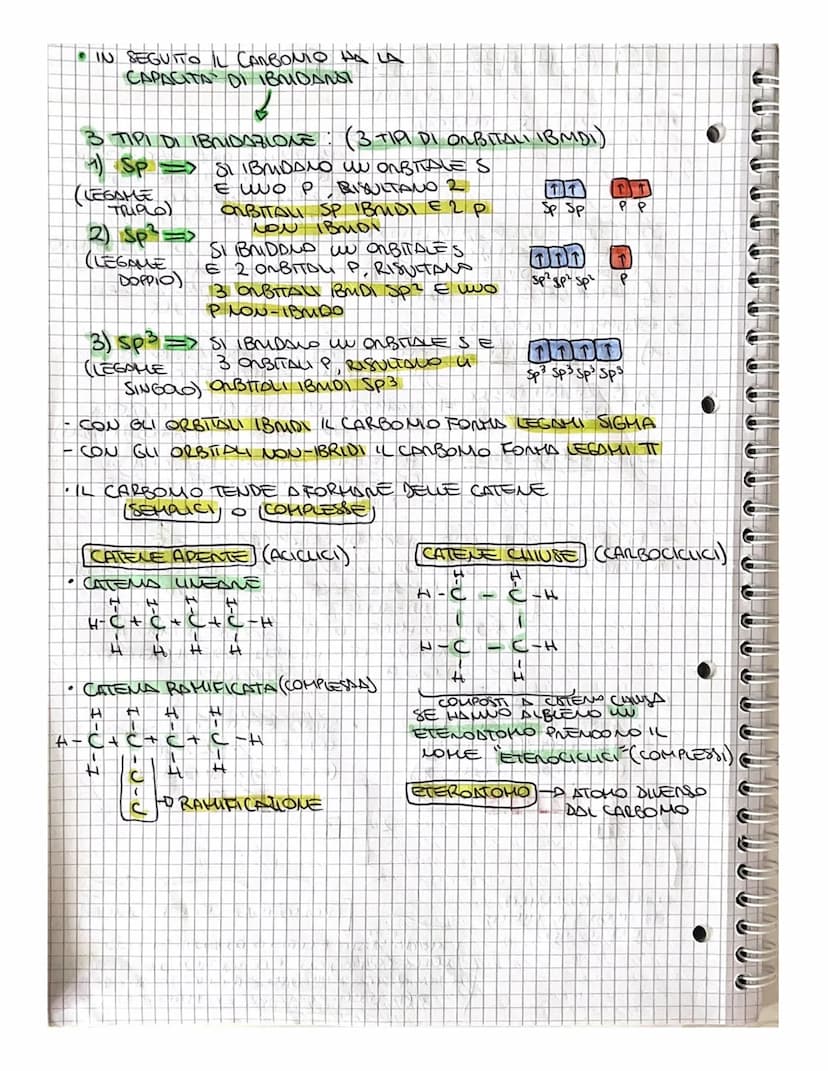 • IN SEGUITO IL CARBONIO HA LA
CAPACITA' DI IBRIDARSI
3 TIPI DI IBRIDAZIONE: (3 TIPI DI ORBITALI IBRIDI)
1) Sp => SI IBRIDANO UN ORBITALE S
(LEGAME TRIPLO)
E UNO P, RISULTANO 2
ORBITALI SP IBRIDI E 2 P
NON IBRIDI
↑ ↑ ↑ ↑
Sp Sp P P
2) Sp² => SI IBRIDANO UN ORBITALE S
(LEGAME DOPPIO)
E 2 ORBITALI P, RISULTANO
3 ORBITALI IBRIDI SP² E UNO
P NON-IBRIDO
↑ ↑ ↑ ↑
Sp² Sp² Sp² P
3) Sp³ => SI IBRIDANO UN ORBITALE S E
(LEGAME SINGOLO)
3 ORBITALI P, RISULTANO 4
ORBITALI IBRIDI SP3
↑ ↑ ↑ ↑
Sp³ Sp³ Sp³ Sp³
- CON GLI ORBITALI IBRIDI IL CARBONIO FORMA LEGAMI SIGMA
- CON GLI ORBITALI NON-IBRIDI IL CARBONIO FORMA LEGAMI π
• IL CARBONIO TENDE A FORMARE DELLE CATENE
SEMPLICI O COMPLESSE
CATENE APERTE (ACICLICI)
• CATENA LINEARE
H H H H
H-C+C+C+C-H
H H H H
• CATENA RAMIFICATA (COMPLESSA)
H H H H
H-C+C+C+C-H
H C H H
C → RAMIFICAZIONE
CATENE CHIUSE (CARBOCICLICI)
H H
H-C - C-H
H-C - C-H
H H
COMPOSTI A CATENA CHIUSA
SE HANNO ALMENO UN
ETEROATOMO PRENDONO IL
NOME "ETEROCICLICI" (COMPLESSI)
ETEROATOMO → ATOMO DIVERSO
DAL CARBONIO